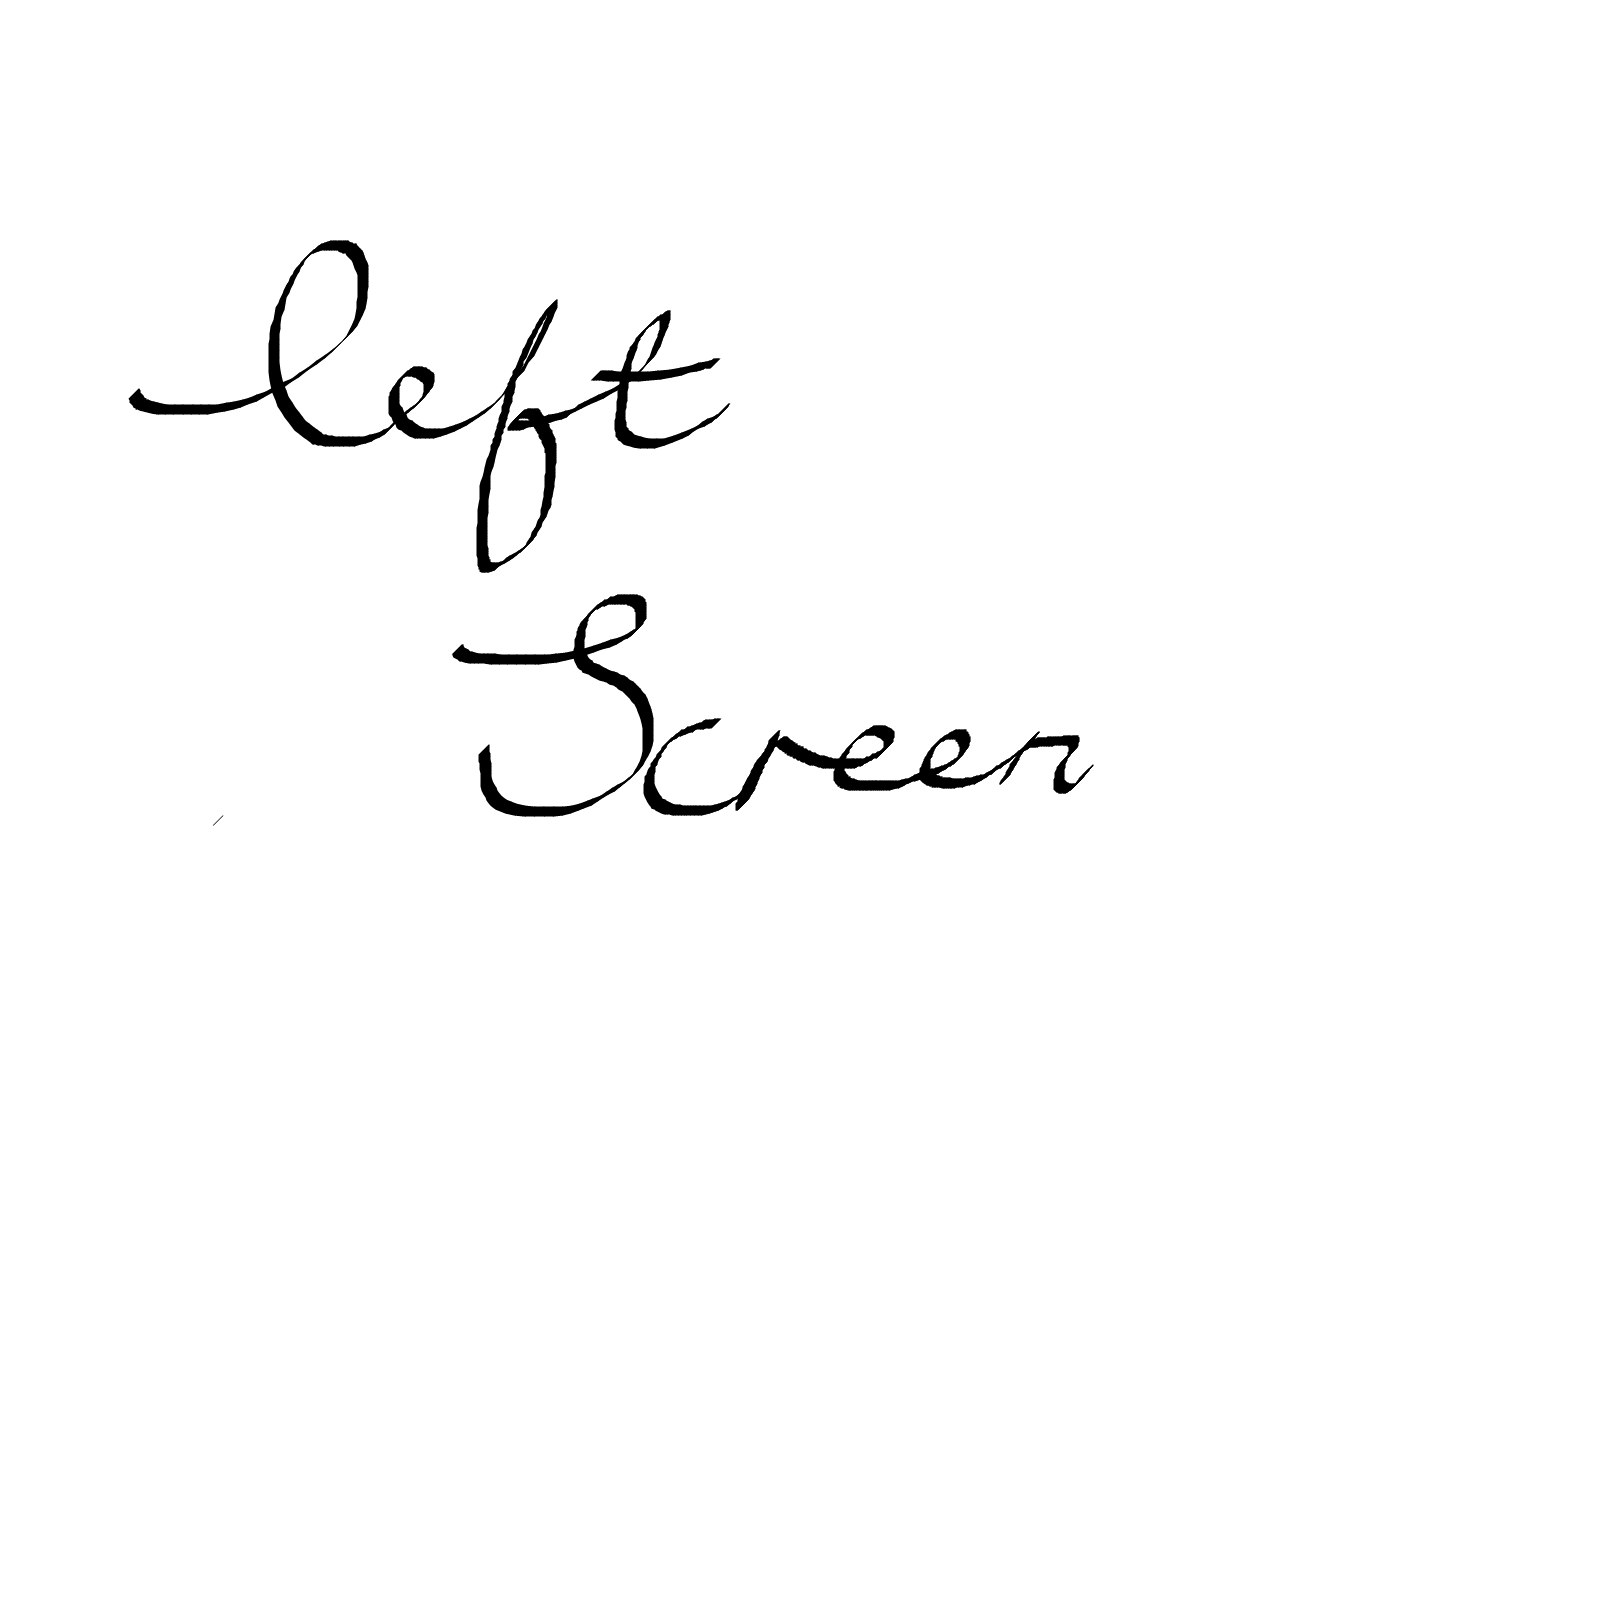 left
Screen